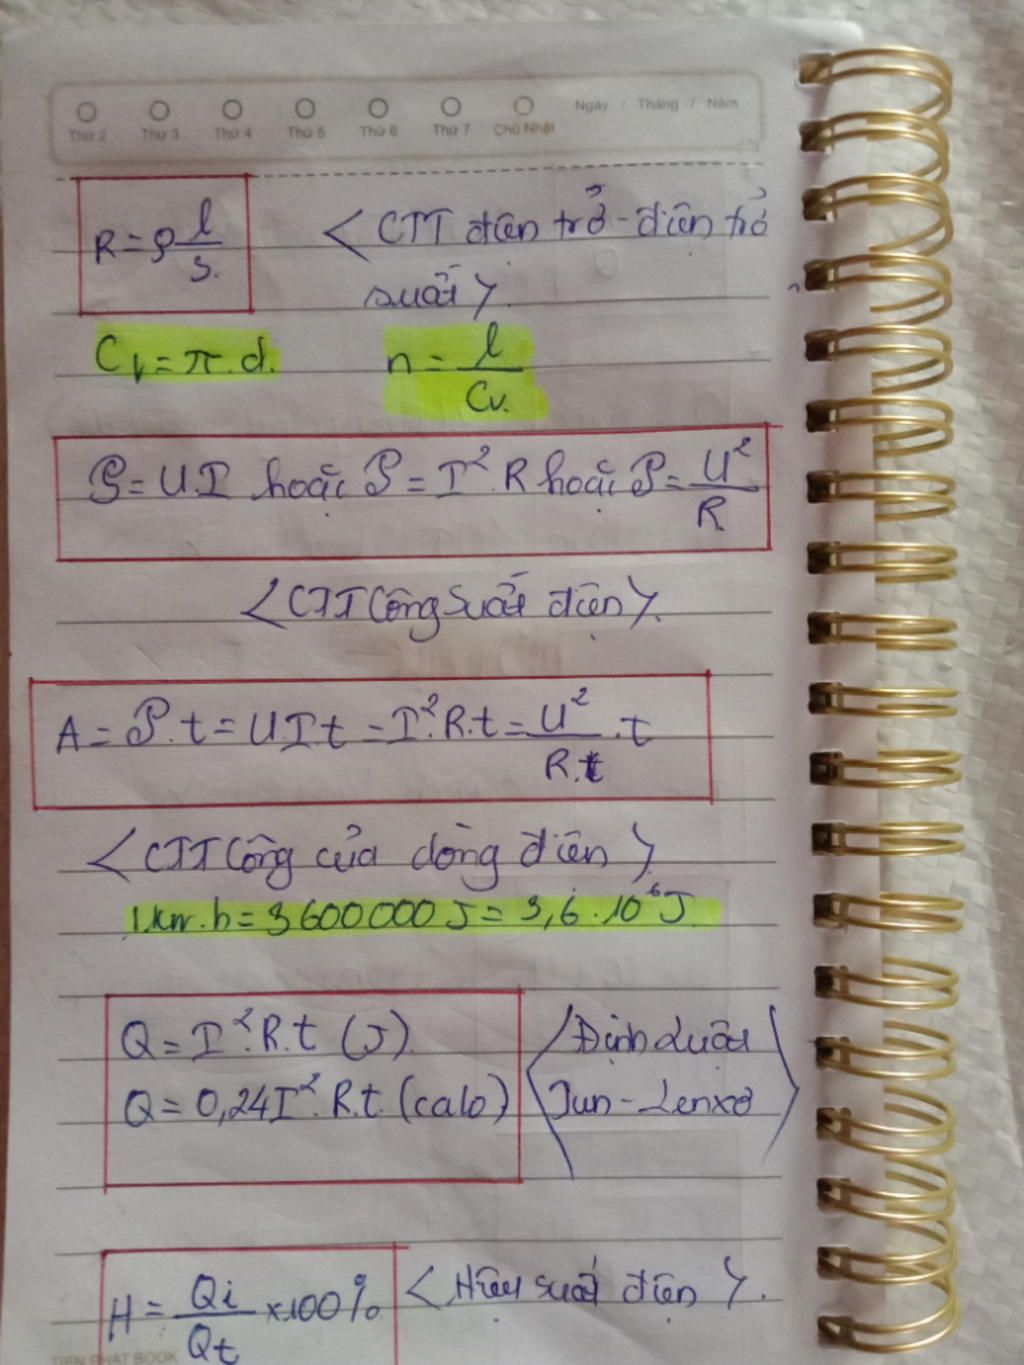 Thứ 2 Thứ 3 Thứ 4 Thứ 5 Thứ 6 Thứ 7 Chủ Nhật Ngày / Tháng / Năm
R = ρ l/S. < CTT điện trở - điện trở
suất >.
Cv = π.d. n = l/Cv.
𝒫 = U.I hoặc 𝒫 = I².R hoặc 𝒫 = U²/R
< CTT Công Suất điện >.
A = 𝒫.t = UIt = I².R.t = U²/R.t
< CTT Công của dòng điện >
1kw.h = 3600000J = 3,6.10⁶J
Q = I².R.t (J). < Định Luật
Q = 0,24I².R.t. (calo) Jun - Lenxơ >
H = Qi/Qt x100% < Hiệu suất điện >.
TIEN PHAT BOOK